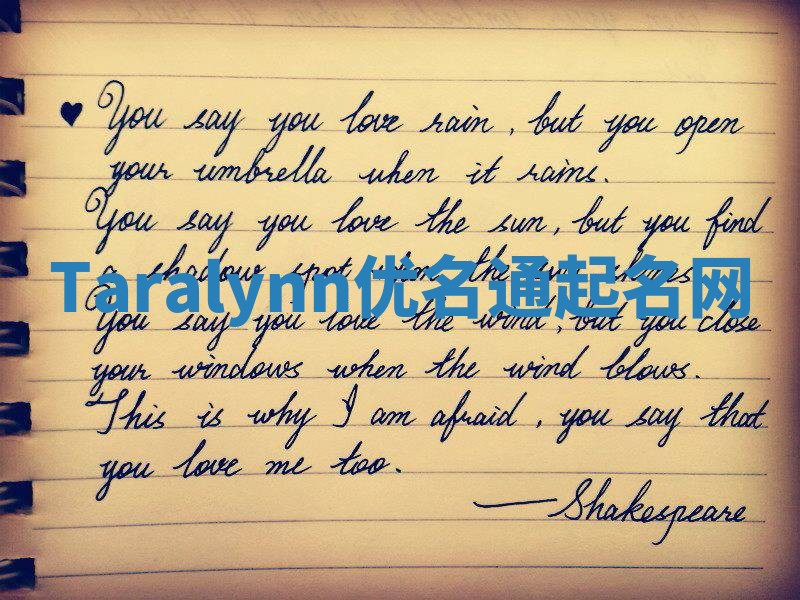 ♥ You say you love rain, but you open
your umbrella when it rains.
You say you love the sun, but you find
a shadow spot when the sun shines
Taralynn优名通起名网
You say you love the wind, but you close
your windows when the wind blows.
This is why I am afraid, you say that
you love me too.
— Shakespeare